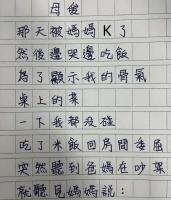 母後
那天被媽媽K了
然後邊哭邊吃飯
為了顯示我的骨氣
桌上的菜
一下我都沒碰
吃了米飯回房間委屈
突然聽到爸媽在吵架
就聽見媽媽說：